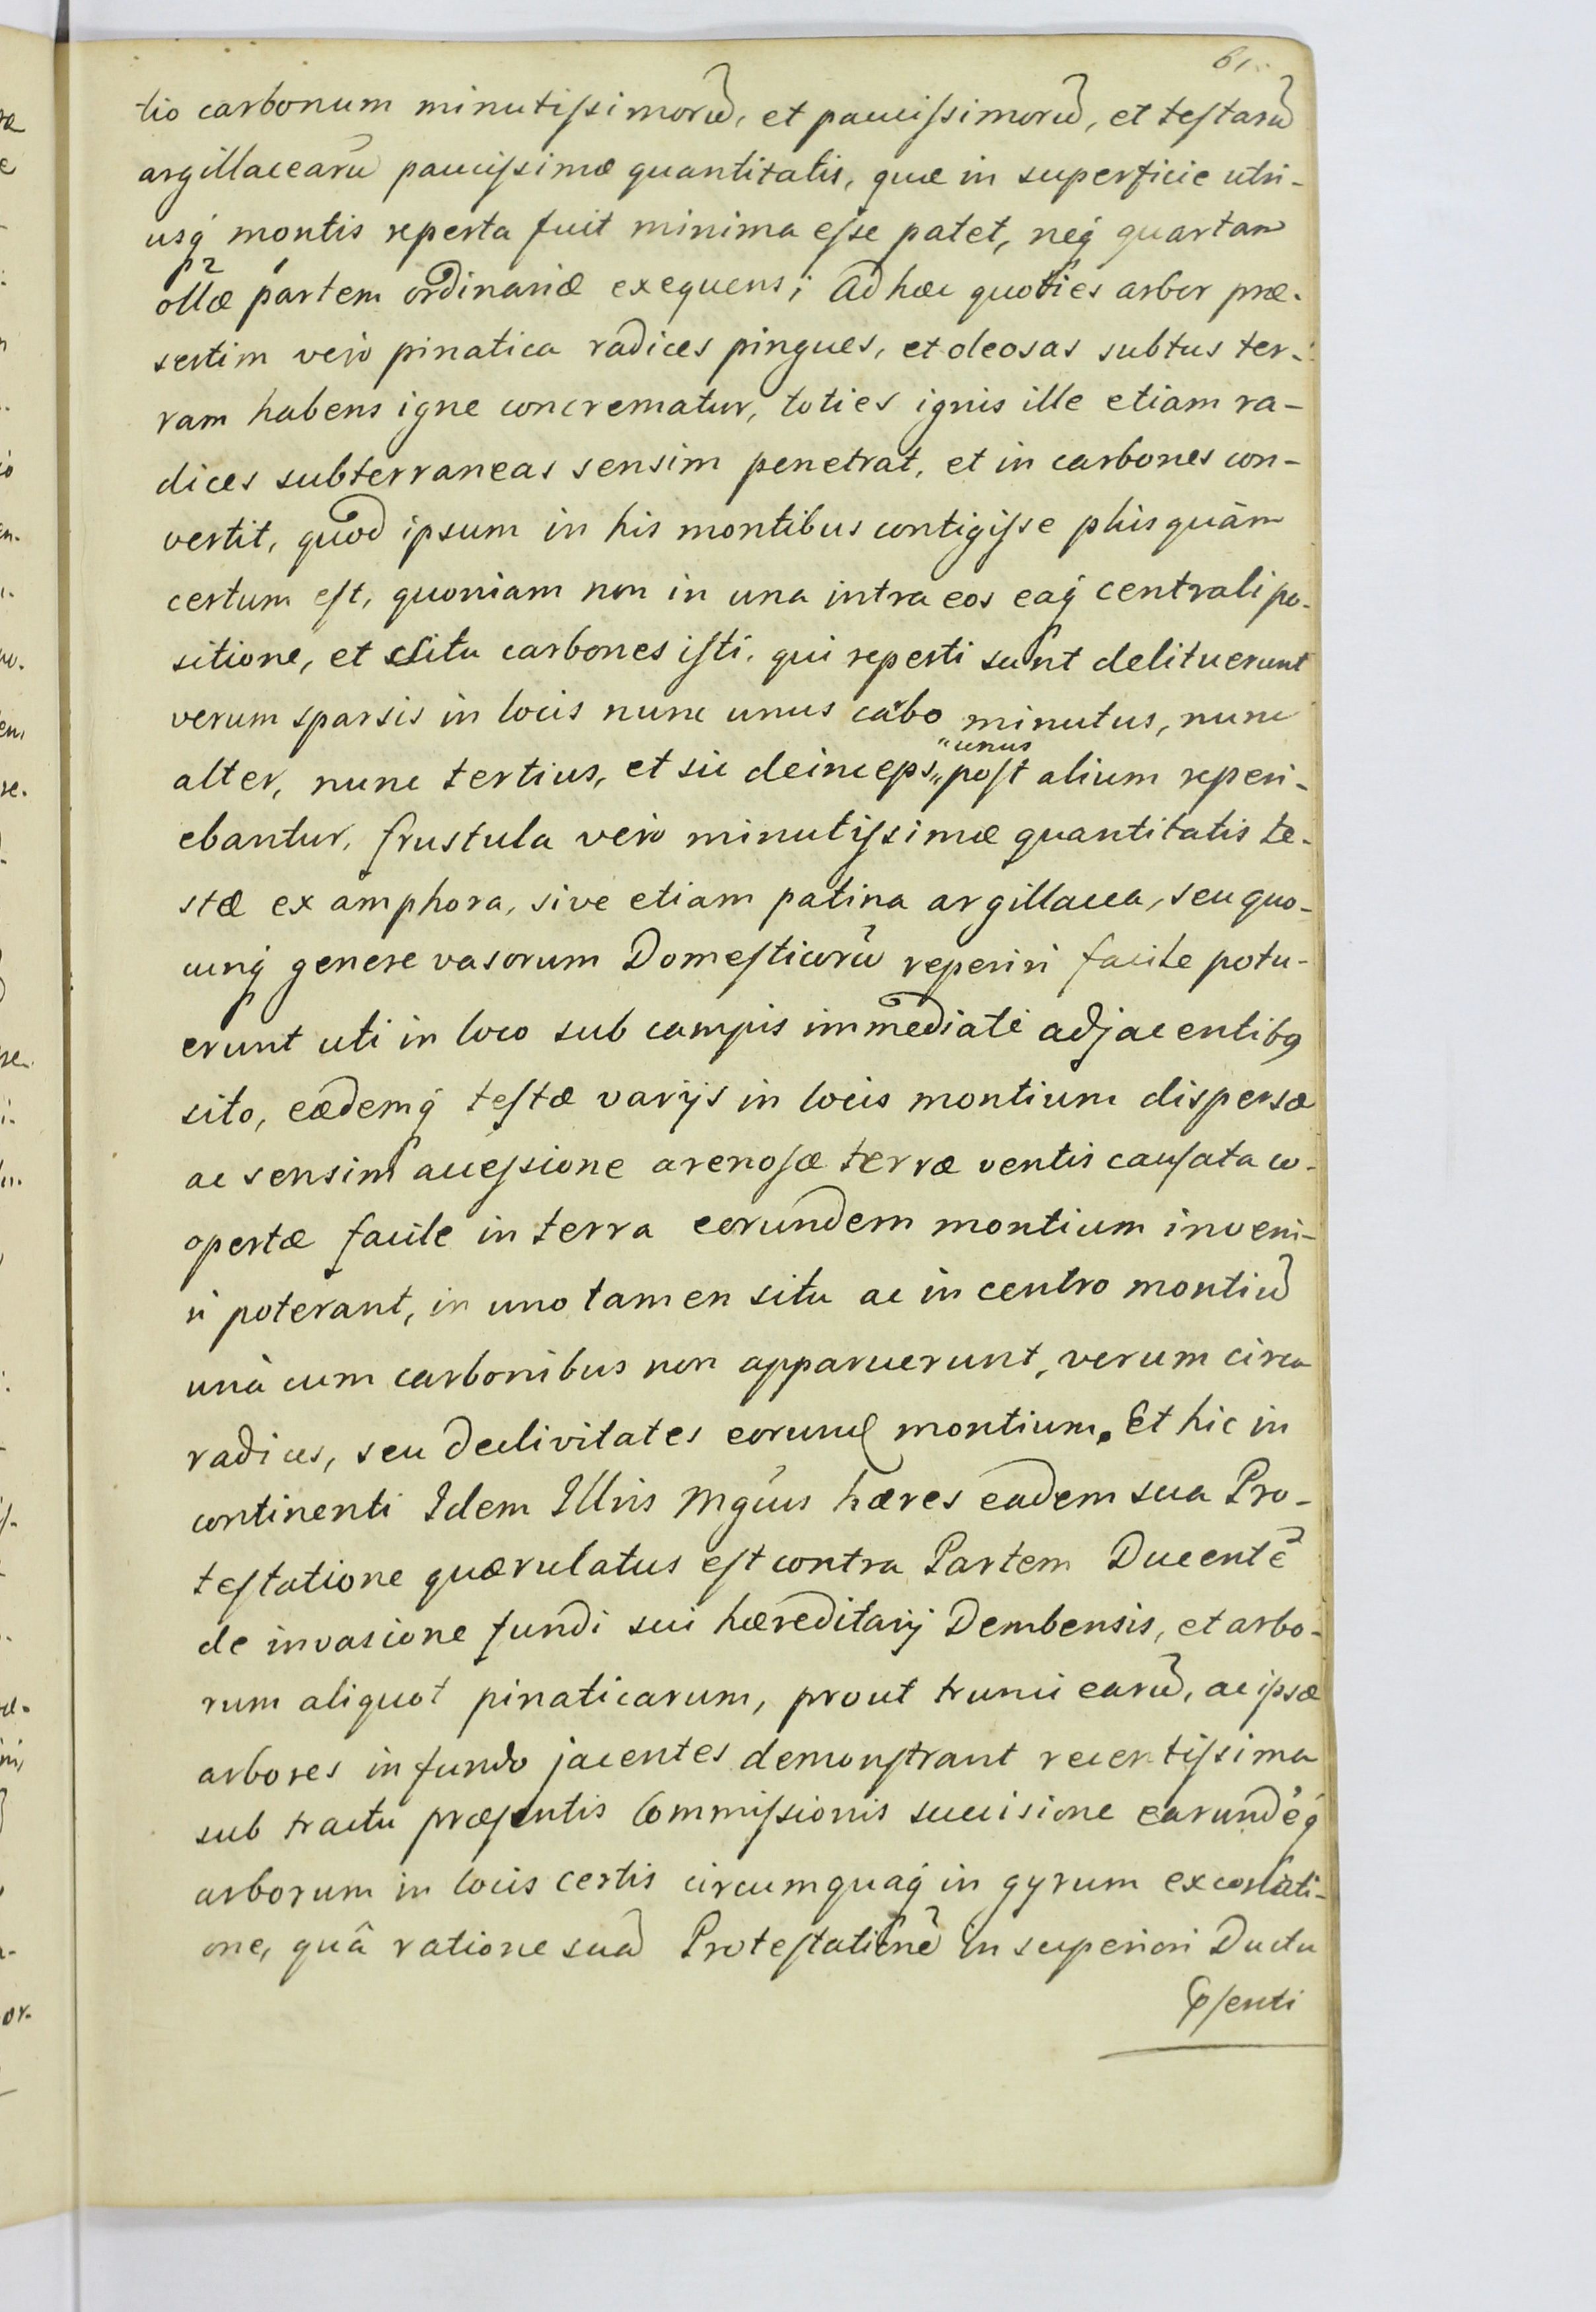 61.
tio carbonum minutiſsimorũ, et pauciſsimorũ, et teſtarũ
argillacearũ pauciſsimæ quantitatis, quæ in superficie utri-
usq̀ montis reperta fuit minima eſse patet, neq̀ quartam
ollæ partem ordinariæ exequens; Ad hæc quoties arbor præ-
sertim vero pinatica radices pingues, et oleosas subtus ter-
ram habens igne concrematur, toties ignis ille etiam ra-
dices subterraneas sensim penetrat, et in carbones con-
vertit, quod ipsum in his montibus contigiſse plusquàm
certum eſt, quoniam non in una intra eos eaq̀ centrali po-
sitione, et situ carbones iſti, qui reperti sunt delituerunt
verum sparsis in locis nunc unus carbo minutus, nunc
"unus
alter, nunc tertius, et sic deinceps " poſt alium reperi-
ebantur, frustula vero minutiſsimæ quantitatis te-
stæ ex amphora, sive etiam patina argillacea, seu quo-
cunq̀ genere vasorum Domeſticorũ reperiri facile potu-
erunt uti in loco sub campis immediatè adjacentibꝯ
sito, eædemq̀ teſtæ varijs in locis montium dispersæ
ac sensim acceſsione arenoſæ terræ ventis cauſata co-
opertæ facile in terra eorundem montium inveni-
ri poterant, in uno tamen situ ac in centro montiũ
unà cum carbonibus non apparuerunt, verum circa
radices, seu declivitates eorund montium. Et hic in
continenti Idem Illris Mgcus hæres eadem sua Pro-
teſtatione quærulatus eſt contra Partem Ducentẽ
de invasione fundi sui hæreditarij Dembensis, et arbo-
rum aliquot pinaticarum, prout trunci earũ, ac ipsæ
arbores in fundo jacentes demonſtrant recentiſsima
sub tractu præſentis Commiſsionis succisione earundẽq̀
arborum in locis certis circumquaq̀ in gyrum excorticati-
one, quâ ratione suã Proteſtationẽ in superiori Ductu